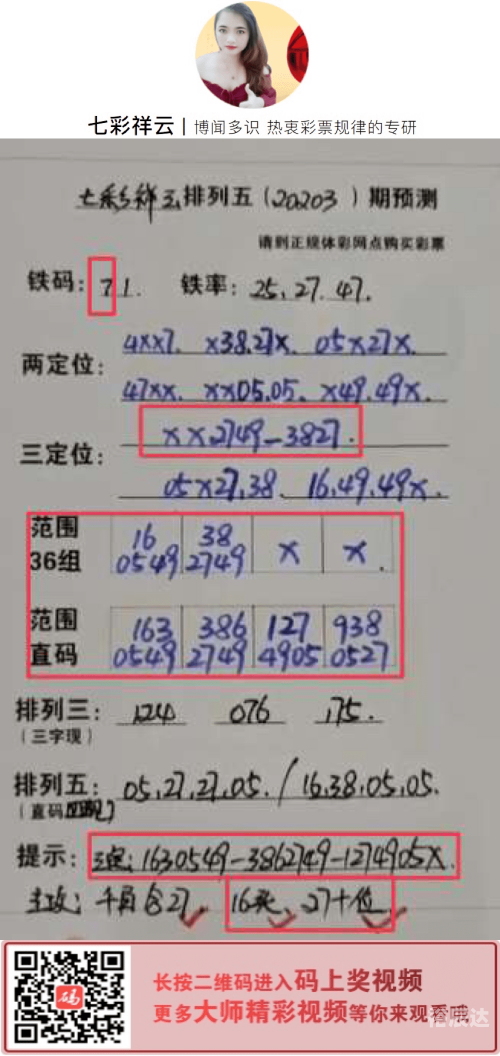 七彩祥云 | 博闻多识 热衷彩票规律的专研
七彩祥云排列五（20203）期预测
请到正规体彩网点购买彩票
铁码：71. 铁率：25.27.47.
两定位：4xx7. x38.27x. 05x27x.
47xx. xx05.05. x49.49x.
三定位：xx2749-3827.
05x27.38. 16.49.49x.
范围36组 16 0549 38 2749 x x.
范围直码 163 0549 386 2749 127 4905 938 0527
排列三：124 076 175.
（三字现）
排列五：05.27.27.05. / 16.38.05.05.
（直码四现）
提示：定：1630549-3862749-1274905x.
主攻：千 含27 16 27十位
码
长按二维码进入码上奖视频
更多大师精彩视频等你来观看哦